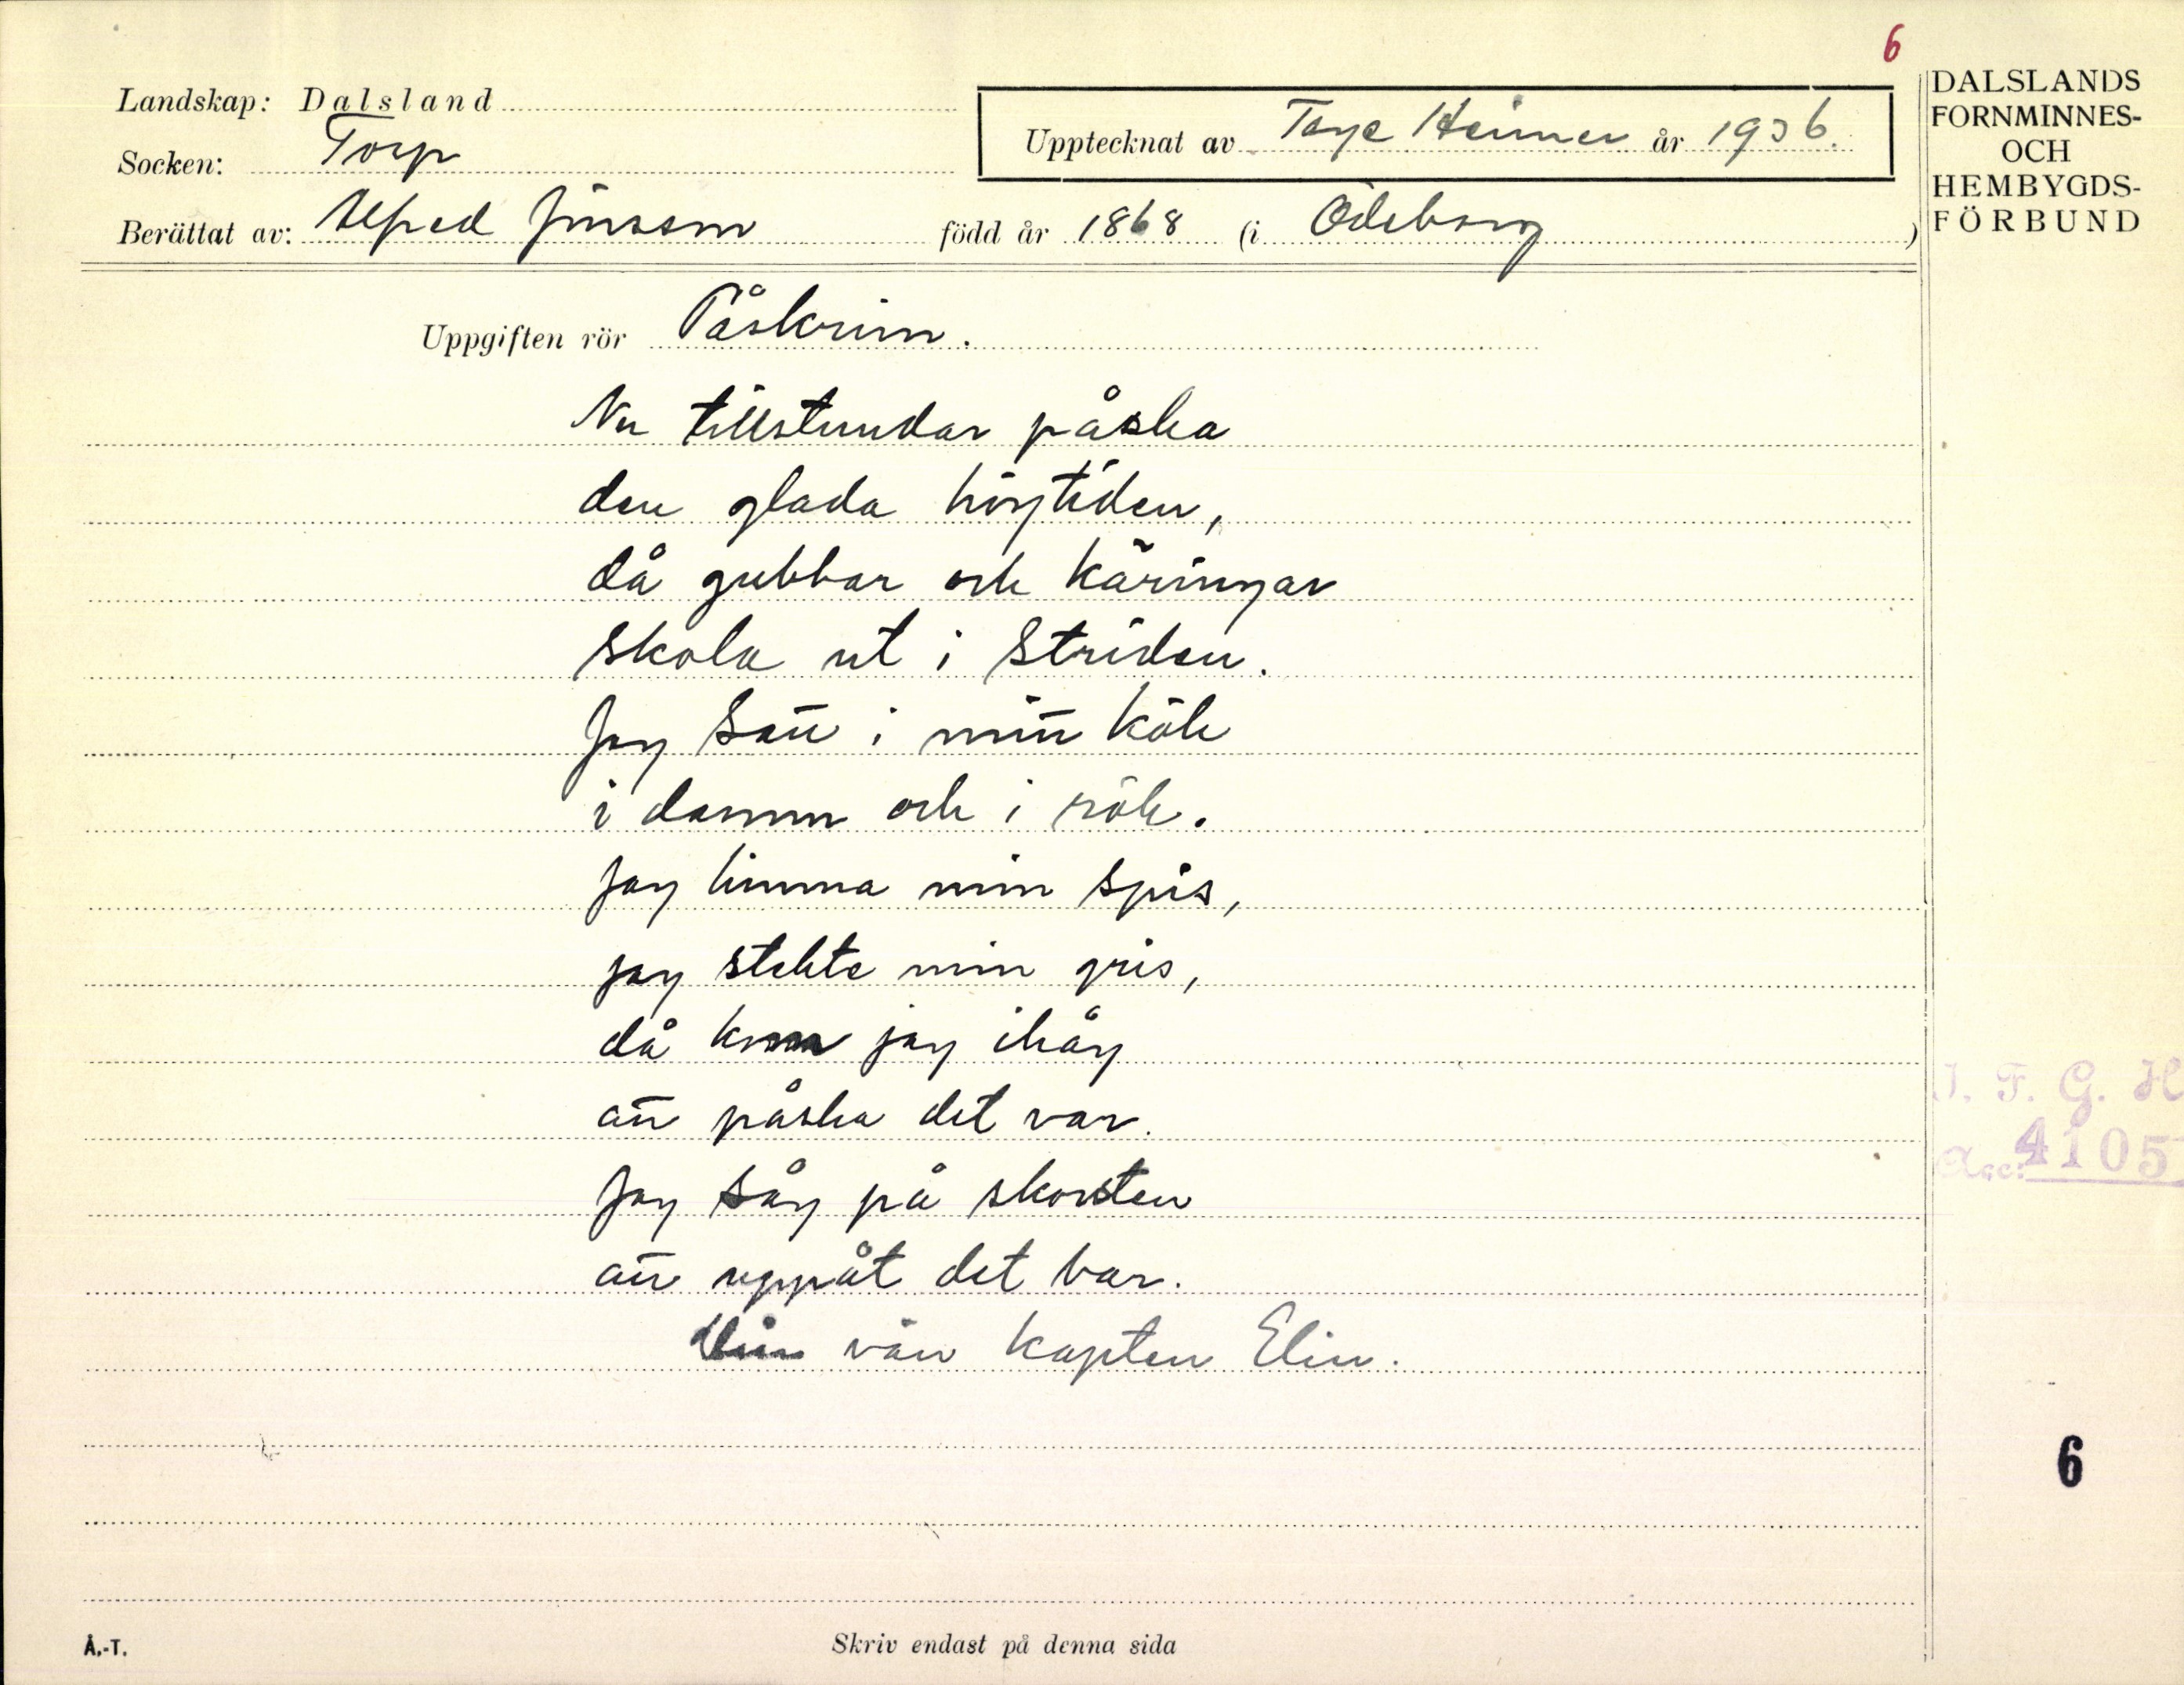 6
Landskap: Dalsland
Socken: Torp
Upptecknat av Tage Heimer år 1936.
Berättat av: Alfred Jonsson född år 1868 (i Ödeborg)
DALSLANDS
FORNMINNES-
OCH
HEMBYGDS-
FÖRBUND
Uppgiften rör Påskrim.
Nu tillstundar påska
den glada högtiden,
då gubbar och käringar
skola ut i striden.
Jag satt i mitt kök
i damm och i rök.
Jag limma min spis,
jag stekte min gris,
då kom jag ihåg
att påska det var.
Jag såg på skorsten
att uppåt det bar.
Din vän kapten Elin.
I. F. G. H
Acc: 4105
6
Å.-T.
Skriv endast på denna sida